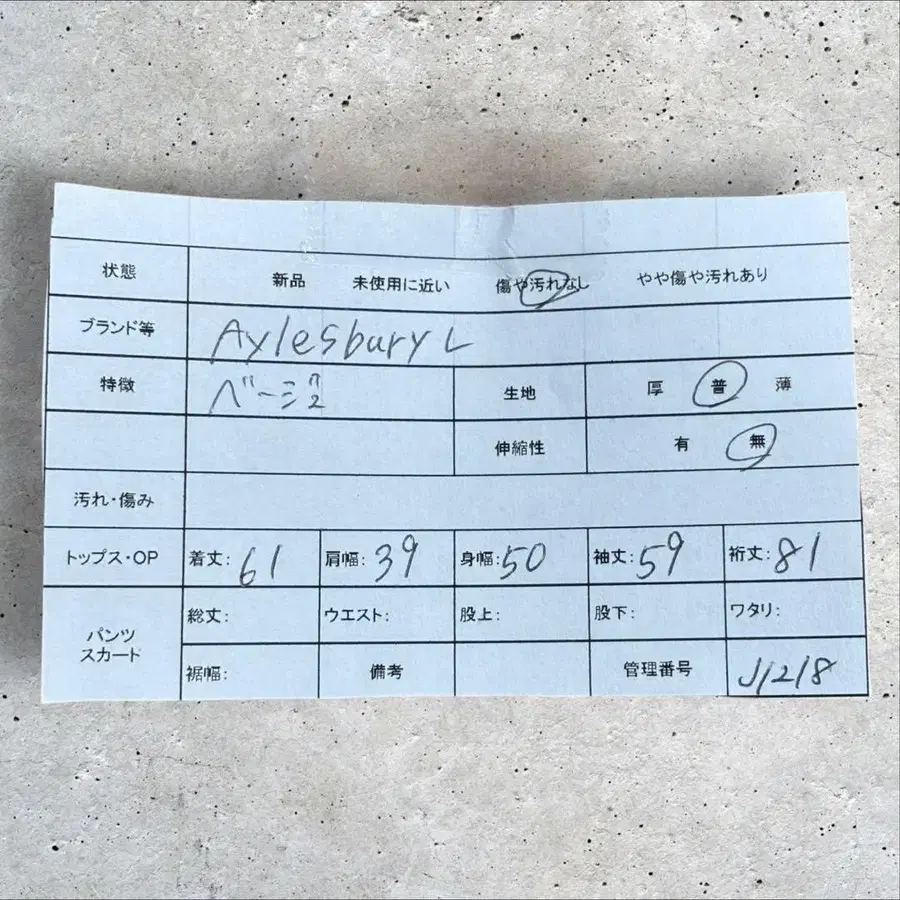 状態 新品 未使用に近い 傷や汚れなし やや傷や汚れあり
ブランド等 Aylesbury L
特徴 ベージュ 生地 厚 普 薄
伸縮性 有 無
汚れ・傷み
トップス・OP 着丈: 61 肩幅: 39 身幅: 50 袖丈: 59 裄丈: 81
パンツ
スカート
総丈: ウエスト: 股上: 股下: ワタリ:
裾幅: 備考 管理番号 J1218